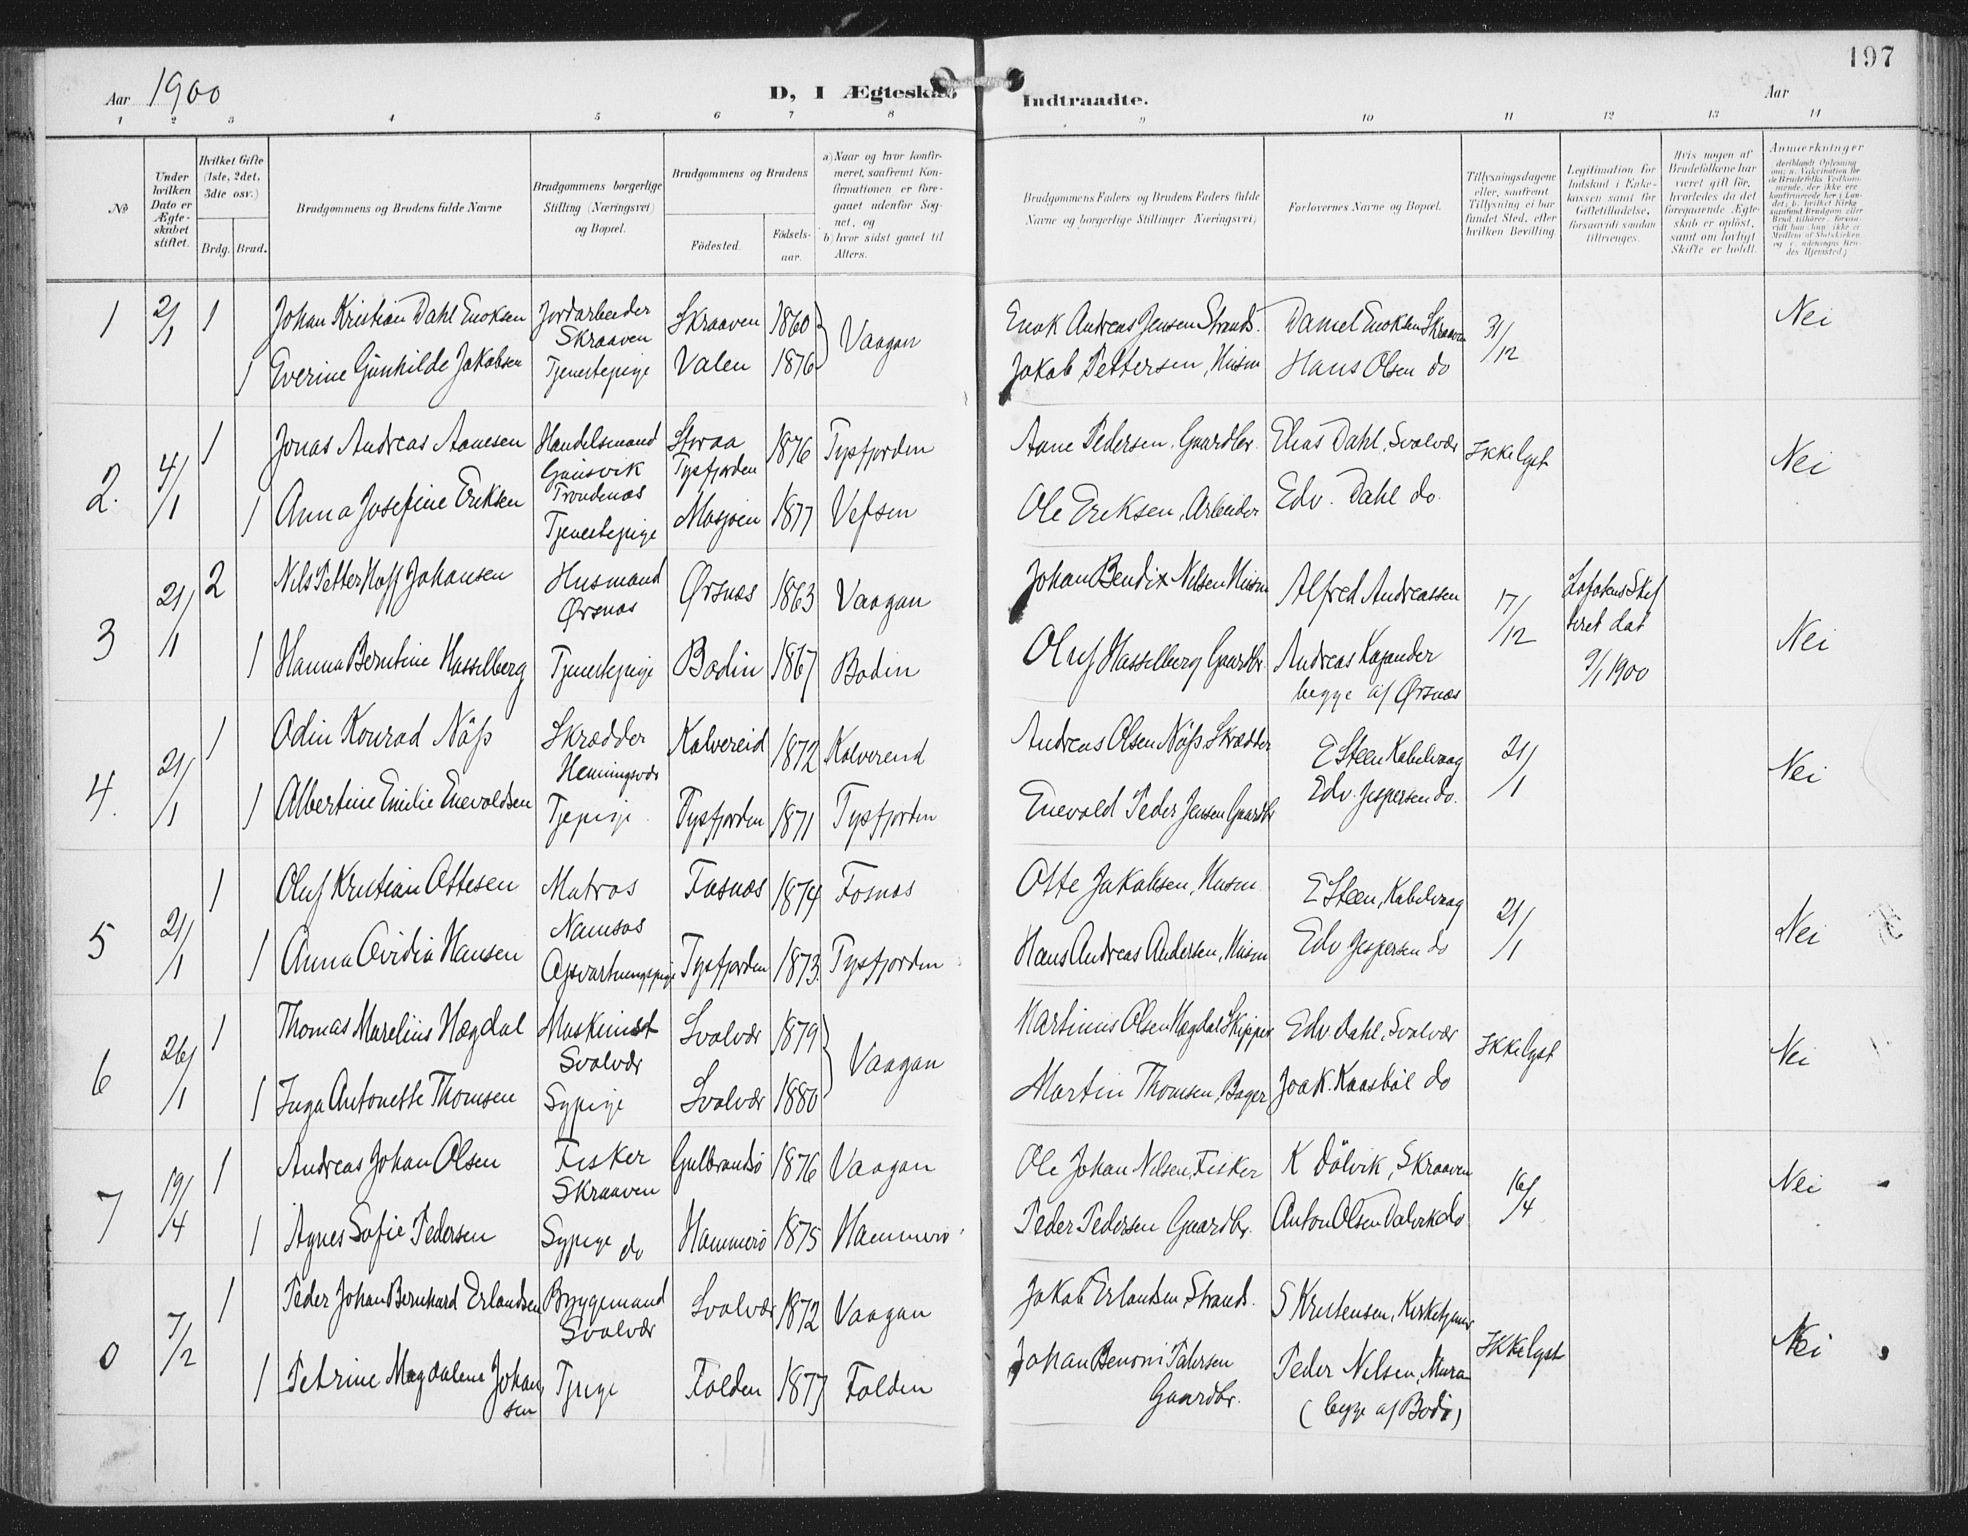 197
Aar 1900
D, I Ægteskab
Indtraadte.
Aar
1 2 3 4 5 6 7 8 9 10 11 12 13 14
No
Under hvilken Dato er Ægteskabet stiftet.
Hvilket Gifte (1ste, 2det, 3die osv.)
Brdg. Brud.
Brudgommens og Brudens fulde Navne
Brudgommens borgerlige Stilling (Næringsvei) og Bopæl.
Brudgommens og Brudens
Födested.
Födselsaar.
a) Naar og hvor konfirmeret, saafremt Konfirmationen er foregaaet udenfor Sognet, og
b) hvor sidst gaaet til Alters.
Brudgommens Faders og Brudens Faders fulde Navne og borgerlige Stillinger Næringsvei)
Forlovernes Navne og Bopæl.
Tillysningsdagene eller, saafremt Tillysning ei har fundet Sted, efter hvilken Bevilling
Legitimation for Indskud i Enkekassen samt for Giftetilladelse, forsaavidt saadan tiltrænges.
Hvis nogen af Brudefolkene har været gift för, hvorledes da det foregaaende Ægteskab er oplöst, samt om lovligt Skifte er holdt.
Anmærkninger
1 2/1 1 Johan Kristian Dahl Enoksen Jordarbeider Skraaven Skraaven 1860 Vaagan Enok Andreas Jensen Strands. Daniel Enoksen Skraaven 31/12 Nei
1 Everine Gunhilde Jakobsen Tjenestepige Valen 1876 Jakob Pettersen, Husm Hans Olsen do
2. 4/1 1 Jonas Andreas Aanesen Handelsmand Gausvik Trondenæs Storaa Tysfjorden 1876 Tysfjorden Aane Pedersen, Gaardbr. Elias Dahl, Svolvær Ikke lyst Nei
1 Anna Josefine Eriksen Tjenestepige Mosjøen 1877 Vefsen Ole Eriksen, Arbeider Edv. Dahl do.
3 21/1 2 Nils Petter Hoff Johansen Husmand Ørsnæs Ørsnæs 1863 Vaagan Johan Bendix Nilsen Husm Alfred Andreassen 17/12 Lofotens Skifteret dat 9/1 1900 Nei
1 Hanna Berntine Hasselberg Tjenestepige Bodin 1867 Bodin Oluf Hasselberg Gaardbr. Andreas Kajander begge af Ørsnæs
4. 21/1 1 Odin Konrad Näss Skrædder Henningsvær Kolvereid 1872 Kolvereid Andreas Olsen Näss Skrædder E Steen Kabelvaag 21/1 Nei
1 Albertine Emilie Enevoldsen Tjepige Tysfjorden 1871 Tysfjorden Enevold Peder Jensen Gaardbr Edv. Jespersen do.
5 21/1 1 Oluf Kristian Ottesen Matros Namsos Fosnæs 1874 Fosnæs Otte Jakobsen, Husm. E Steen, Kabelvaag 21/1 Nei
1 Anna Ovidia Hansen Opvartningspige Tysfjorden 1873. Tysfjorden Hans Andreas Andersen, Husm Edv Jespersen do
6 26/1 1 Thomas Marelius Hægdal Maskinist Svolvær Svolvær 1879 Vaagan Martinus Olsen Hægdal Skipper Edv Dahl, Svolvær Ikke lyst Nei
1 Inga Antonette Thomsen Sypige Svolvær 1880 Martin Thomsen, Bager Joak. Kaasböl do
7 19/4 1 Andreas Johan Olsen Fisker Skraaven Gulbrandsö 1876 Vaagan Ole Johan Nilsen, Fisker K Dölvik, Skraaven 16/4 Nei
1 Agnes Sofie Pedersen Sypige do Hammerö 1875 Hammerö Peder Pedersen Gaardbr. Anton Olsen Dalvik do
0 7/2 1 Peder Johan Bernhard Erlandsen Bryggemand Svolvær Svolvær 1872 Vaagan Jakob Erlandsen, Strands. S Kristensen, Kirketjener Ikke lyst Nei
1 Petrine Magdalene Johansen Tjpige Folden 1877 Folden Johan Benoni Gaardbr. Peder Nilsen, (begge af Bodö)